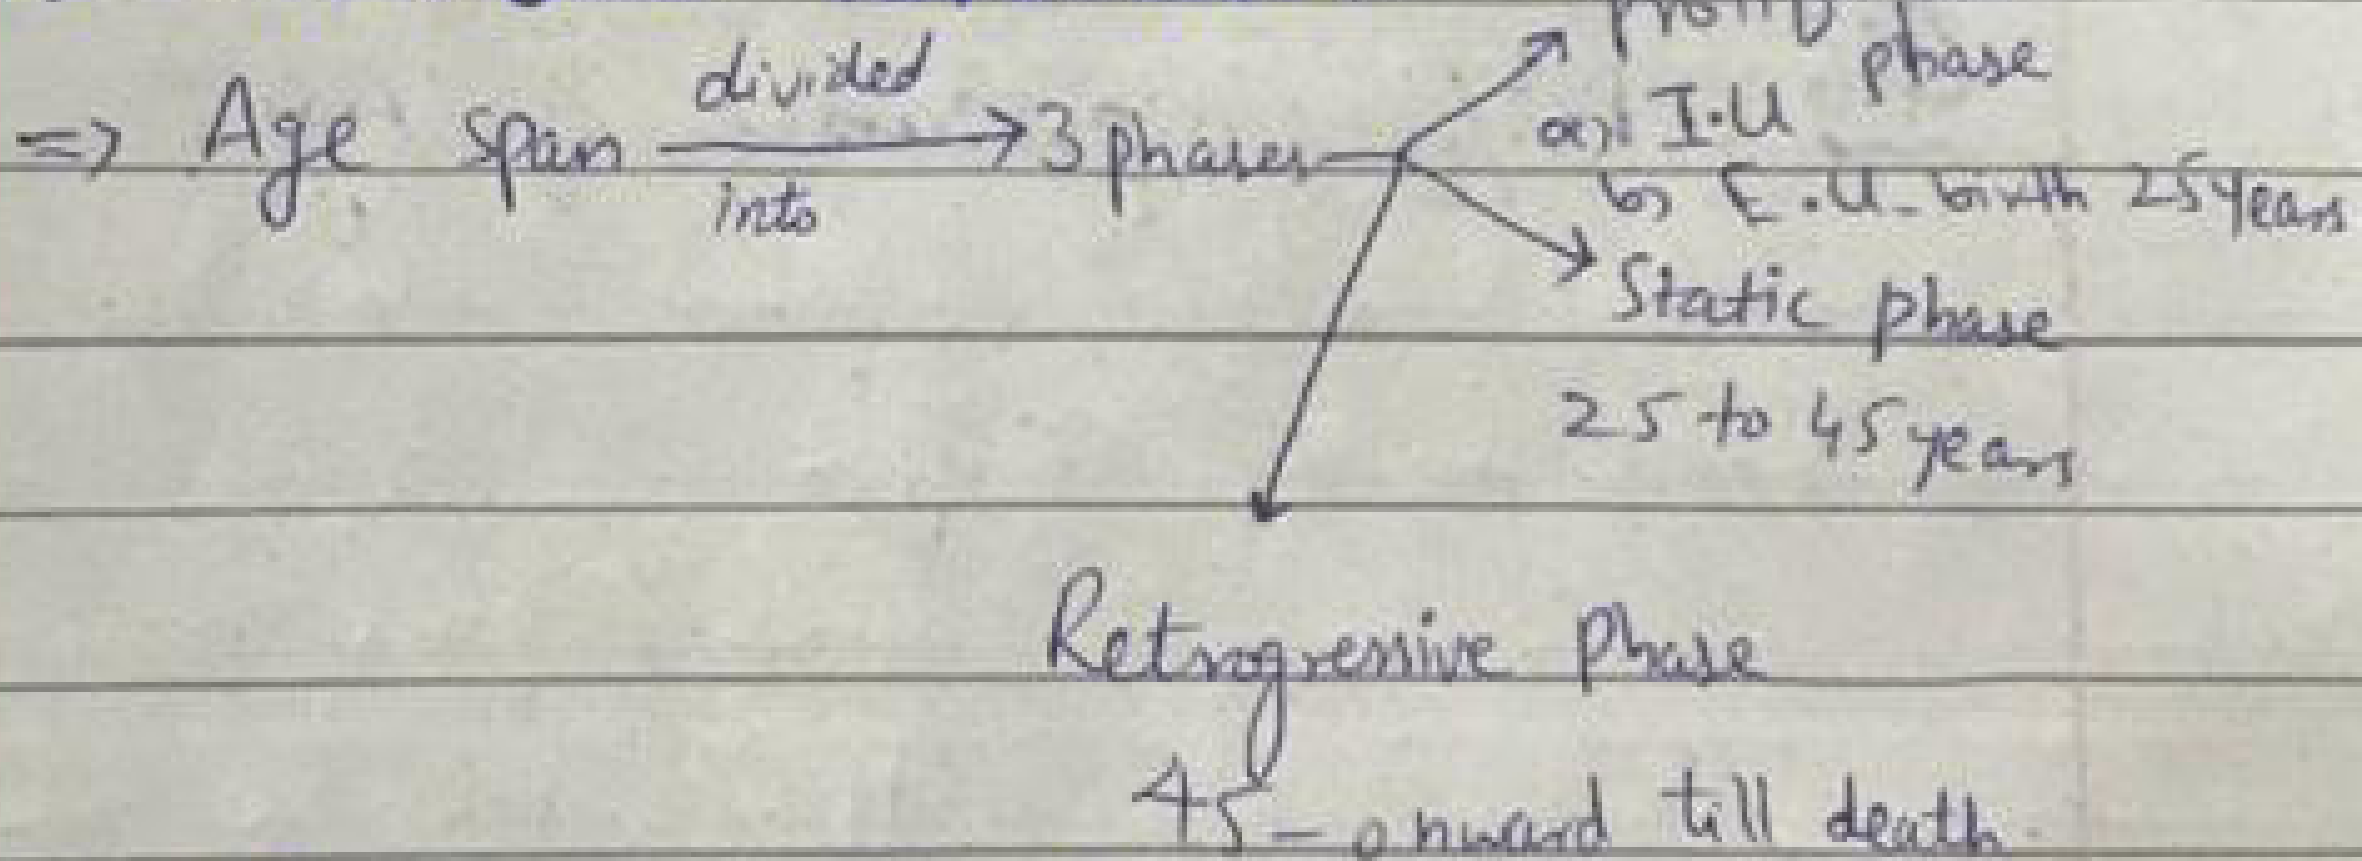 => Age span divided into → 3 phases
phase
a) I.U
b) E.U - birth 25 years
Static phase
25 to 45 years
Retrogressive Phase
45 - onward till death